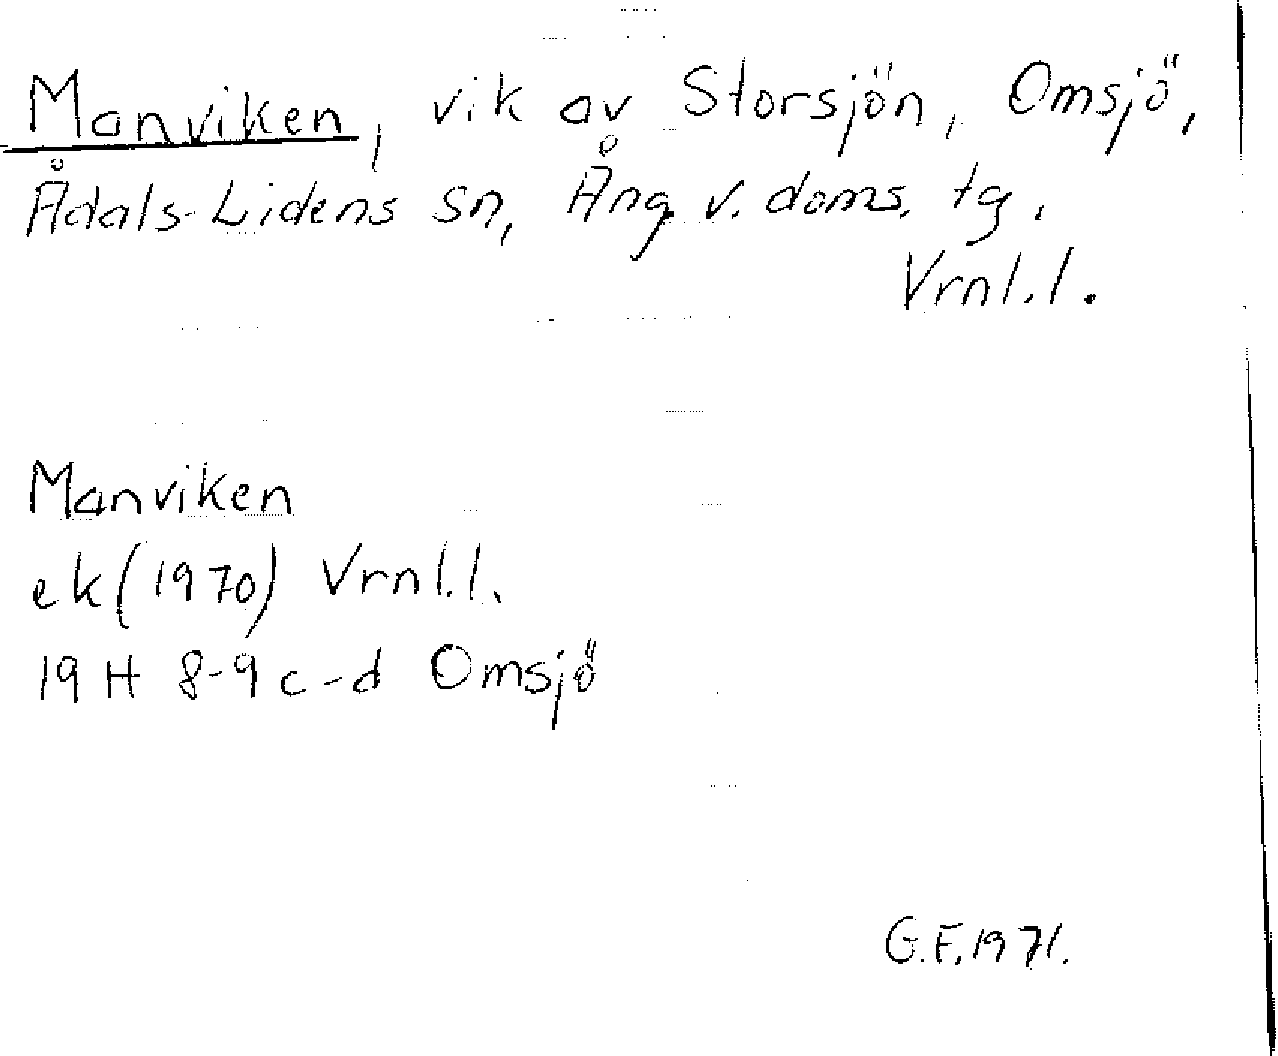 Manviken, vik av Storsjön, Omsjö,
Ådals-Lidens sn, Ång. v. doms. tg.
Vrnl.l.
Manviken
ek (1970) Vrnl.l.
19 H 8-9 c-d Omsjö
G.F. 1971.